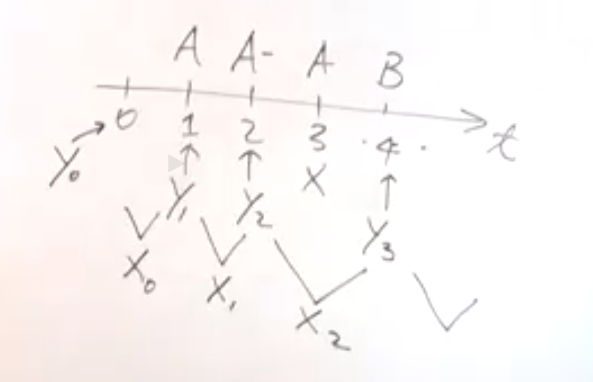 A A- A B
0 1 2 3 4 t
Y₀ X
Y₁ Y₂ Y₃
X₀ X₁ X₂